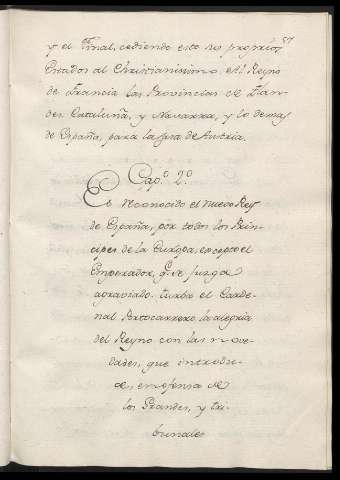 57
y el Final, cediendo esto sus proprios
Estados al Christianissimo. Al Reyno
de Francia las Provincias de Flan-
des Cataluña, y Navarra, y lo demas
de España, para la Augusta Austria.
Cap.º 2.º
Es Reconocido el nuevo Rey
de España, por todos los Prin-
cipes de la Europa, excepto el
Emperador, q.e se juzga
agraviado. turba el Carde-
nal Portocarrero la alegria
del Reyno con las nove-
dades, que introdu-
ce en ofensa de
los Grandes, y tri-
bunales